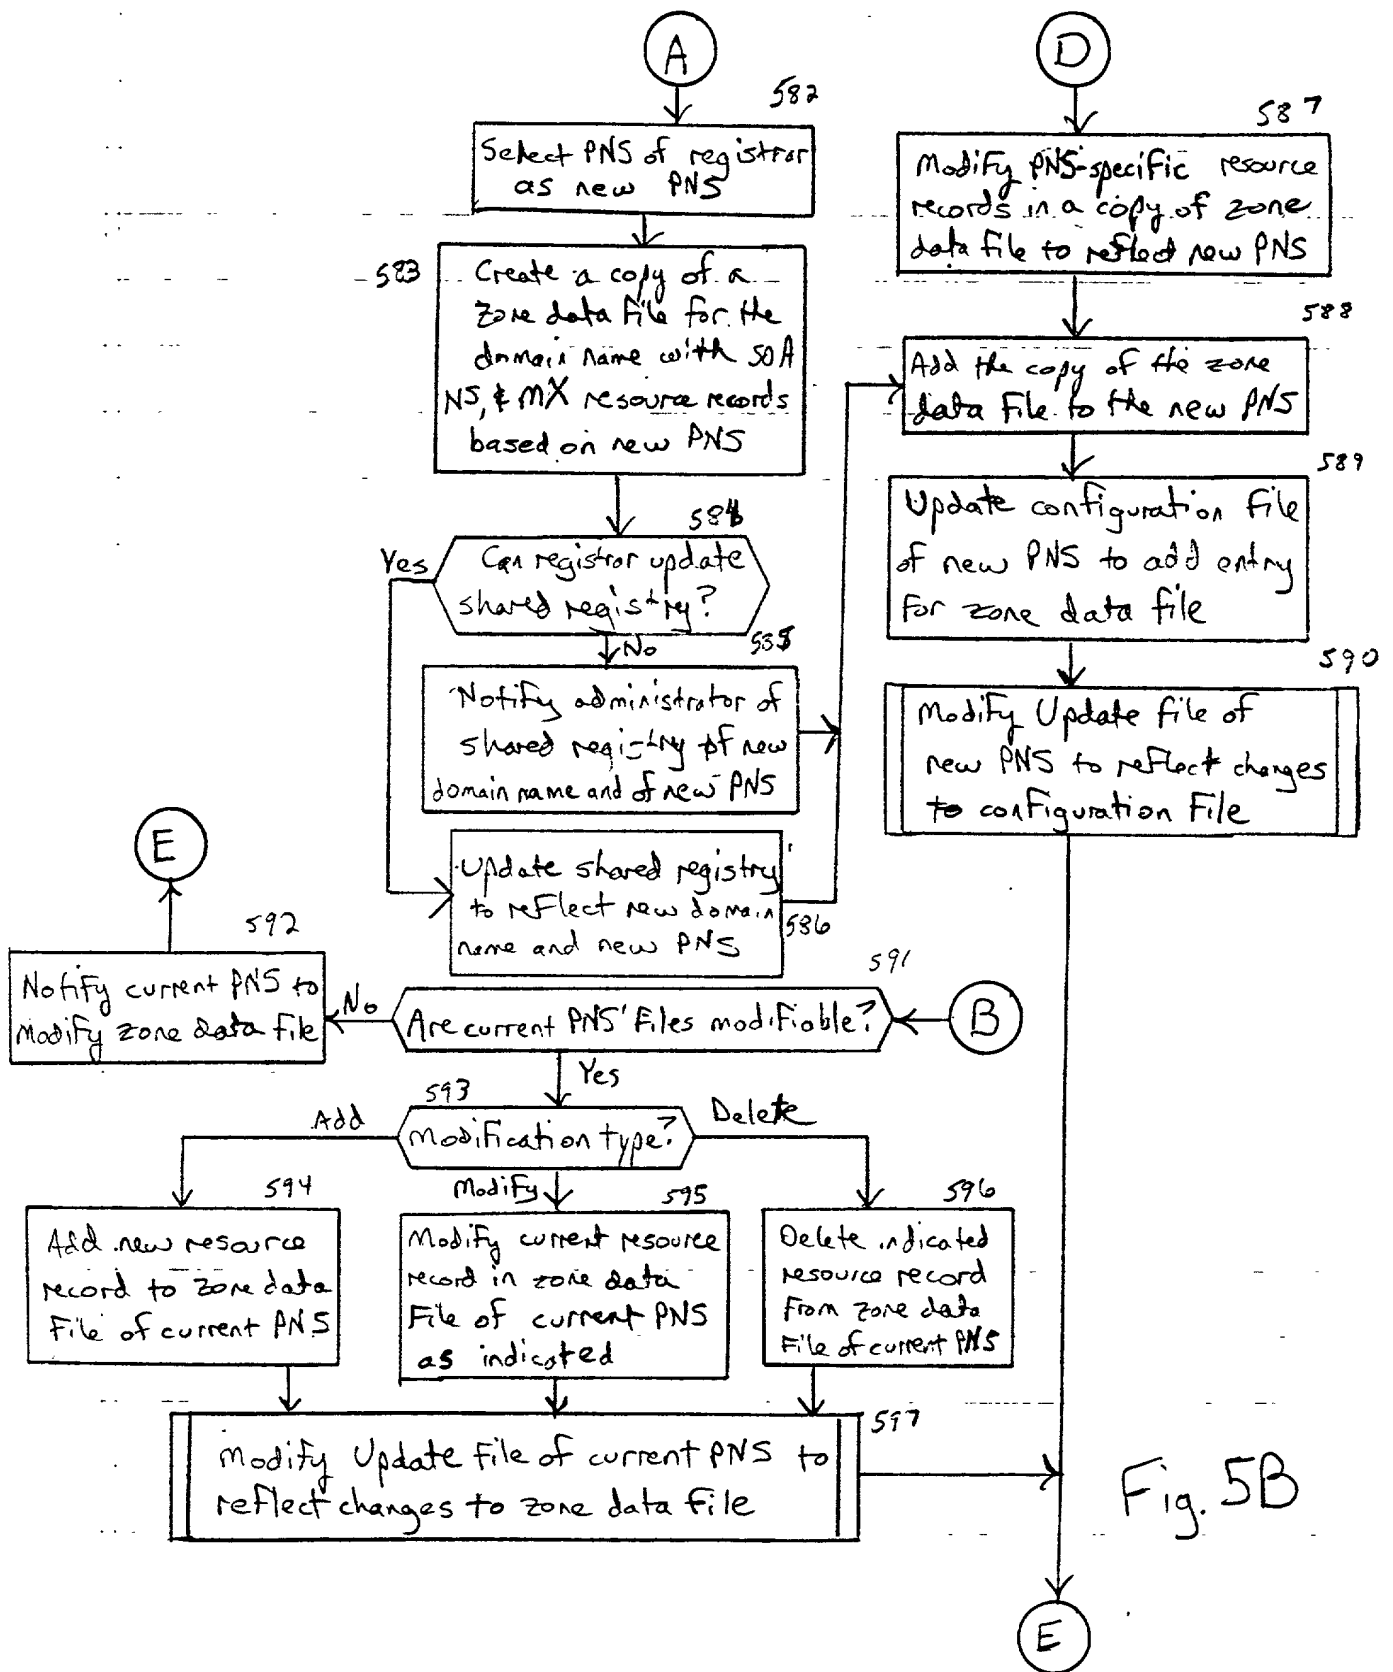 A
582
Select PNS of registrar
as new PNS
583
Create a copy of a
zone data file for the
domain name with SOA
NS, & MX resource records
based on new PNS
584
Can registrar update
shared registry?
Yes
No
585
Notify administrator of
shared registry of new
domain name and of new PNS
Update shared registry
to reflect new domain
name and new PNS
586
D
587
Modify PNS-specific resource
records in a copy of zone
data file to reflect new PNS
588
Add the copy of the zone
data file to the new PNS
589
Update configuration file
of new PNS to add entry
for zone data file
590
Modify Update file of
new PNS to reflect changes
to configuration file
E
592
Notify current PNS to
modify zone data file
No
591
Are current PNS' files modifiable?
B
Yes
593
Modification type?
Add
Modify
Delete
594
Add new resource
record to zone data
file of current PNS
595
Modify current resource
record in zone data
file of current PNS
as indicated
596
Delete indicated
resource record
from zone data
file of current PNS
597
Modify Update file of current PNS to
reflect changes to zone data file
E
Fig. 5B